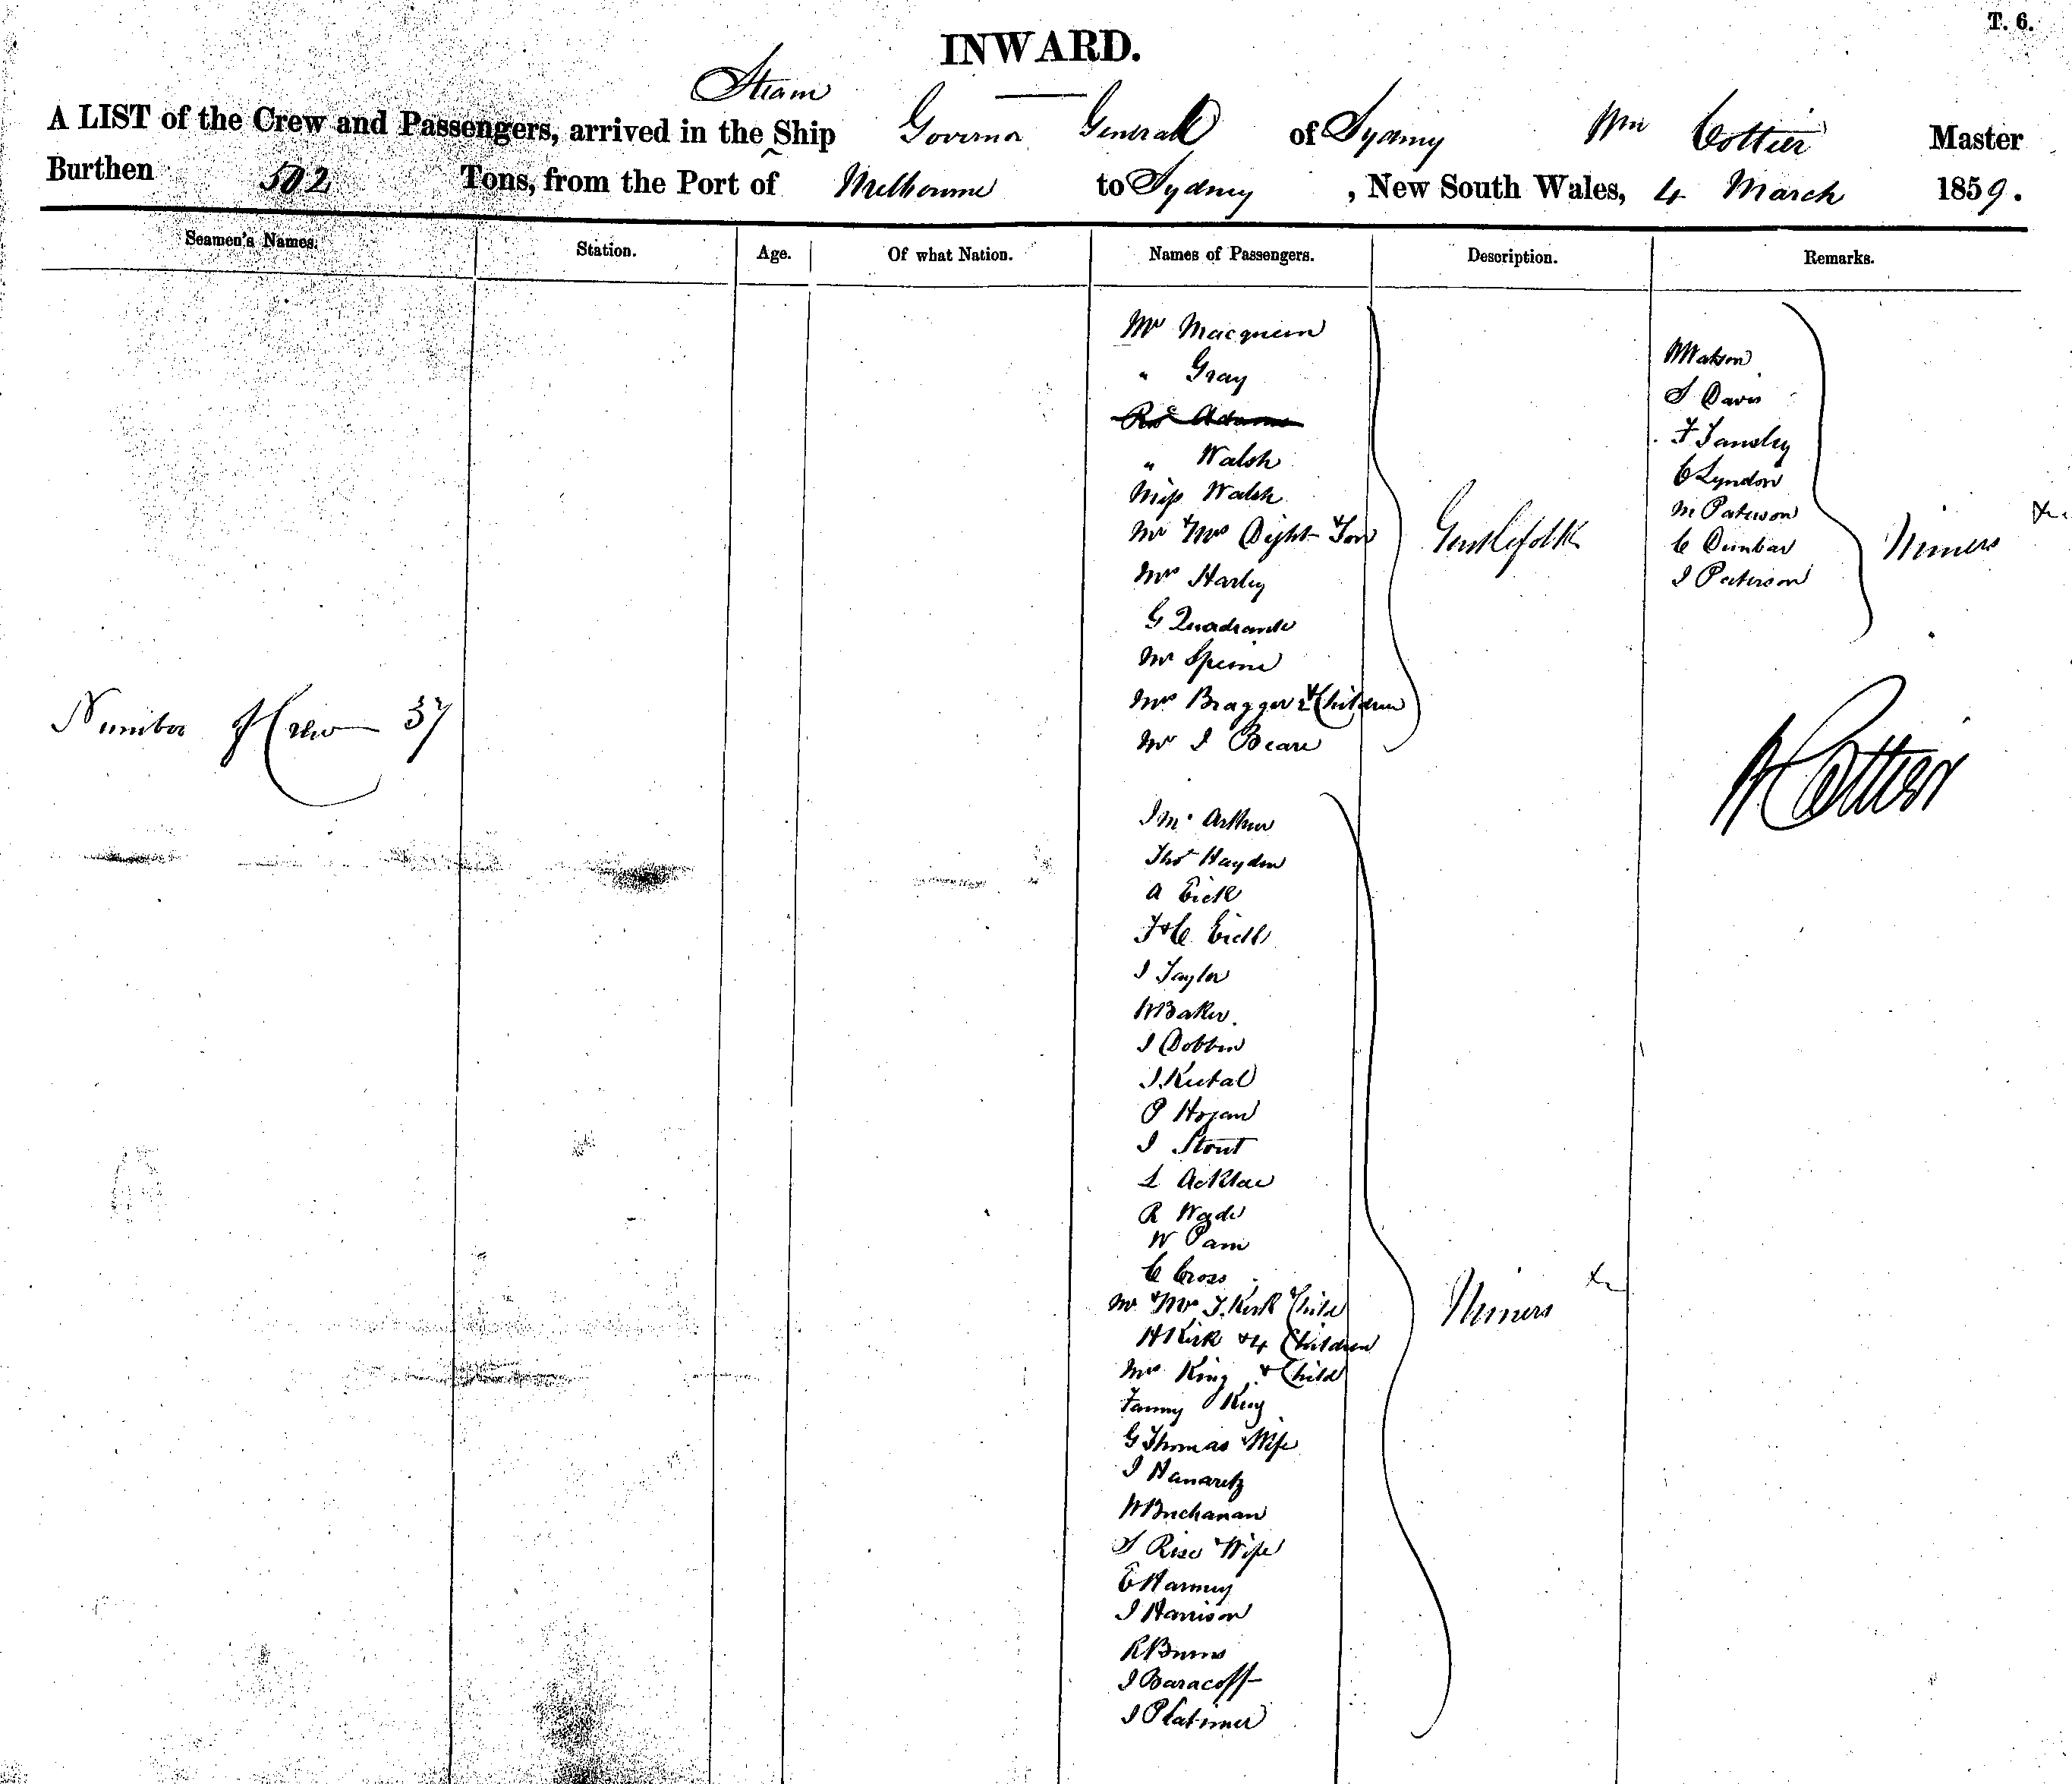 T. 6.
INWARD.
Steam
A LIST of the Crew and Passengers, arrived in the Ship Governor General of Sydney Wm Cottier Master
Burthen 502 Tons, from the Port of Melbourne to Sydney, New South Wales, 4 March 1859.
Seamen's Names. Station. Age. Of what Nation. Names of Passengers. Description. Remarks.
Mr Macqueen
" Gray
" Walsh
Miss Walsh
Mr & Mrs Dight & Son
Mrs Harley
G
Mr
Mrs Bragger & 2 Children
Mr J Beare
Gentlefolk
W Watson
S Davis
F Tansley
C Lyndon
M Paterson
C Dunbar
J Paterson
Miners &c
Number of Crew 37
W Cottier
J Mc Arthur
Thos Hayden
A
F & C
J Taylor
W Baker
J Dobbin
J
P Hogan
J Stout
L
R Wade
W
C Cross
Mr & Mrs J. Kirk & Child
H Kirk & 4 Children
Mrs King & Child
Fanny King
G Thomas & Wife
J
W Buchanan
S Rise & Wife
E
J Harrison
R Burns
J Baracoff
J P Latimer
Miners &c